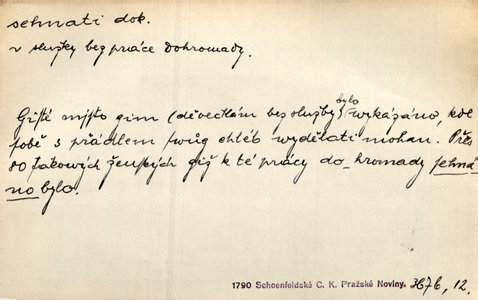 sehnati dok.
v služky bez práce dohromady.
Gisté místo gim (děvečkám bez služby) bylo wykázáno, kde
sobě s přádlem swůg chléb wydělati mohau. Přes
80 takowých ženských giž k té prácy do-hromady sehná-
no bylo.
1790 Schoenfeldské C. K. Pražské Noviny. 367b, 12.